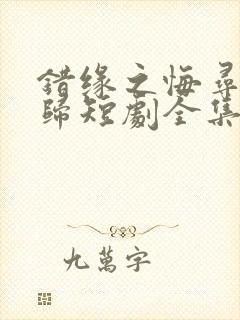 错缘之悔尋
歸短劇全集
九萬字